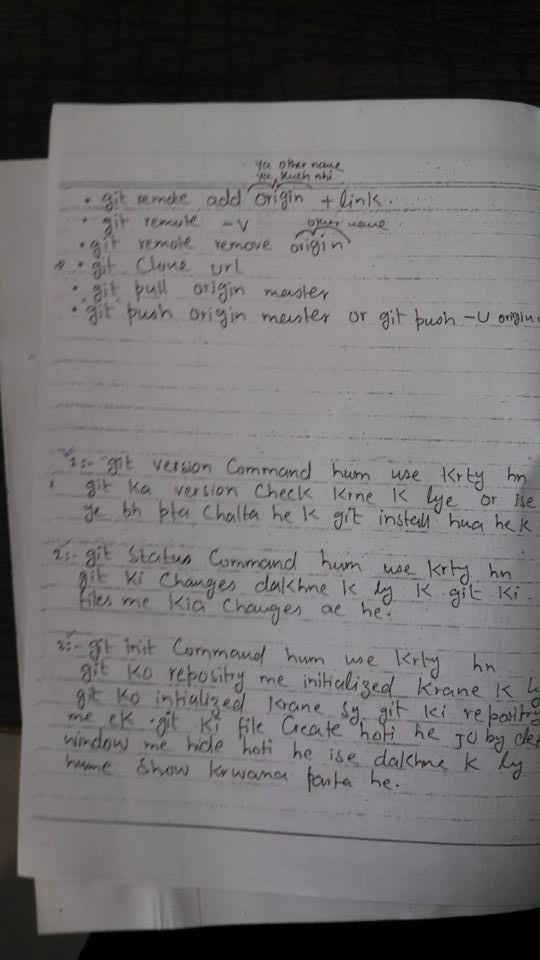 ya other name
ya kuch nhi
• git remote add origin + link.
• git remote -v
other name
• git remote remove origin
• git Clone url
• git pull origin master
• git push origin master or git push -u origin
1:- git version Command hum use krty hn
git ka version Check krne k lye or ise
ye bh pta Chalta he k git install hua he k
2:- git status Command hum use krty hn
git ki Changes dakhne k ly k git ki
files me kia Changes ae he.
3:- git init Command hum use krty hn
git ko repositry me initialized krane k ly
git ko intialized krane sy git ki repositry
me ek .git ki file Create hoti he jo by def
window me hide hoti he ise dakhne k ly
hume show krwana parta he.